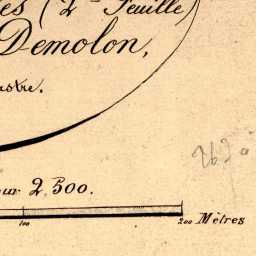 es (2me Feuille)
Demolon,
astre.
our 2,500.
100 200 Mètres